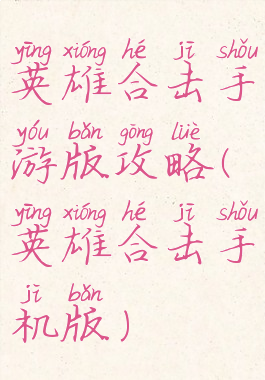 yīng xióng hé jī shǒu
英雄合击手
yóu bǎn gōng lüè
游版攻略(
yīng xióng hé jī shǒu
英雄合击手
jī bǎn
机版)